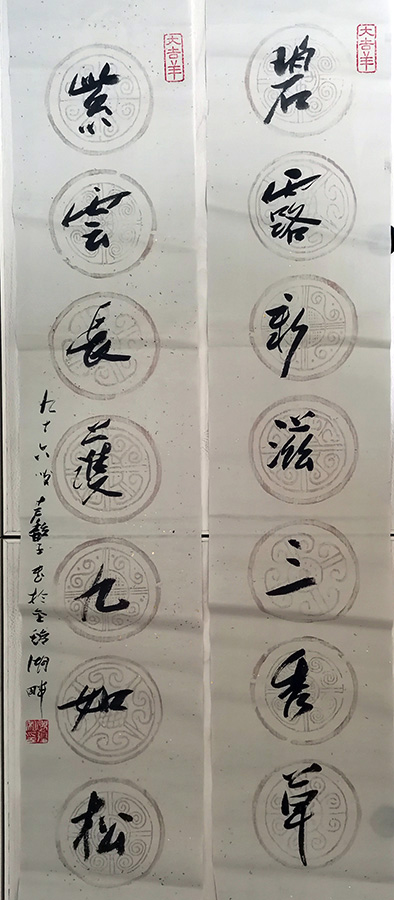 大吉羊
碧露新滋三秀草
大吉羊
紫雲長護九如松
九十六叟 書於金雞湖畔